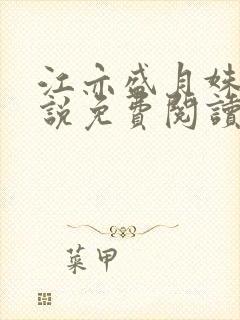 江亦盛月妹
說免費閱讀
菜甲